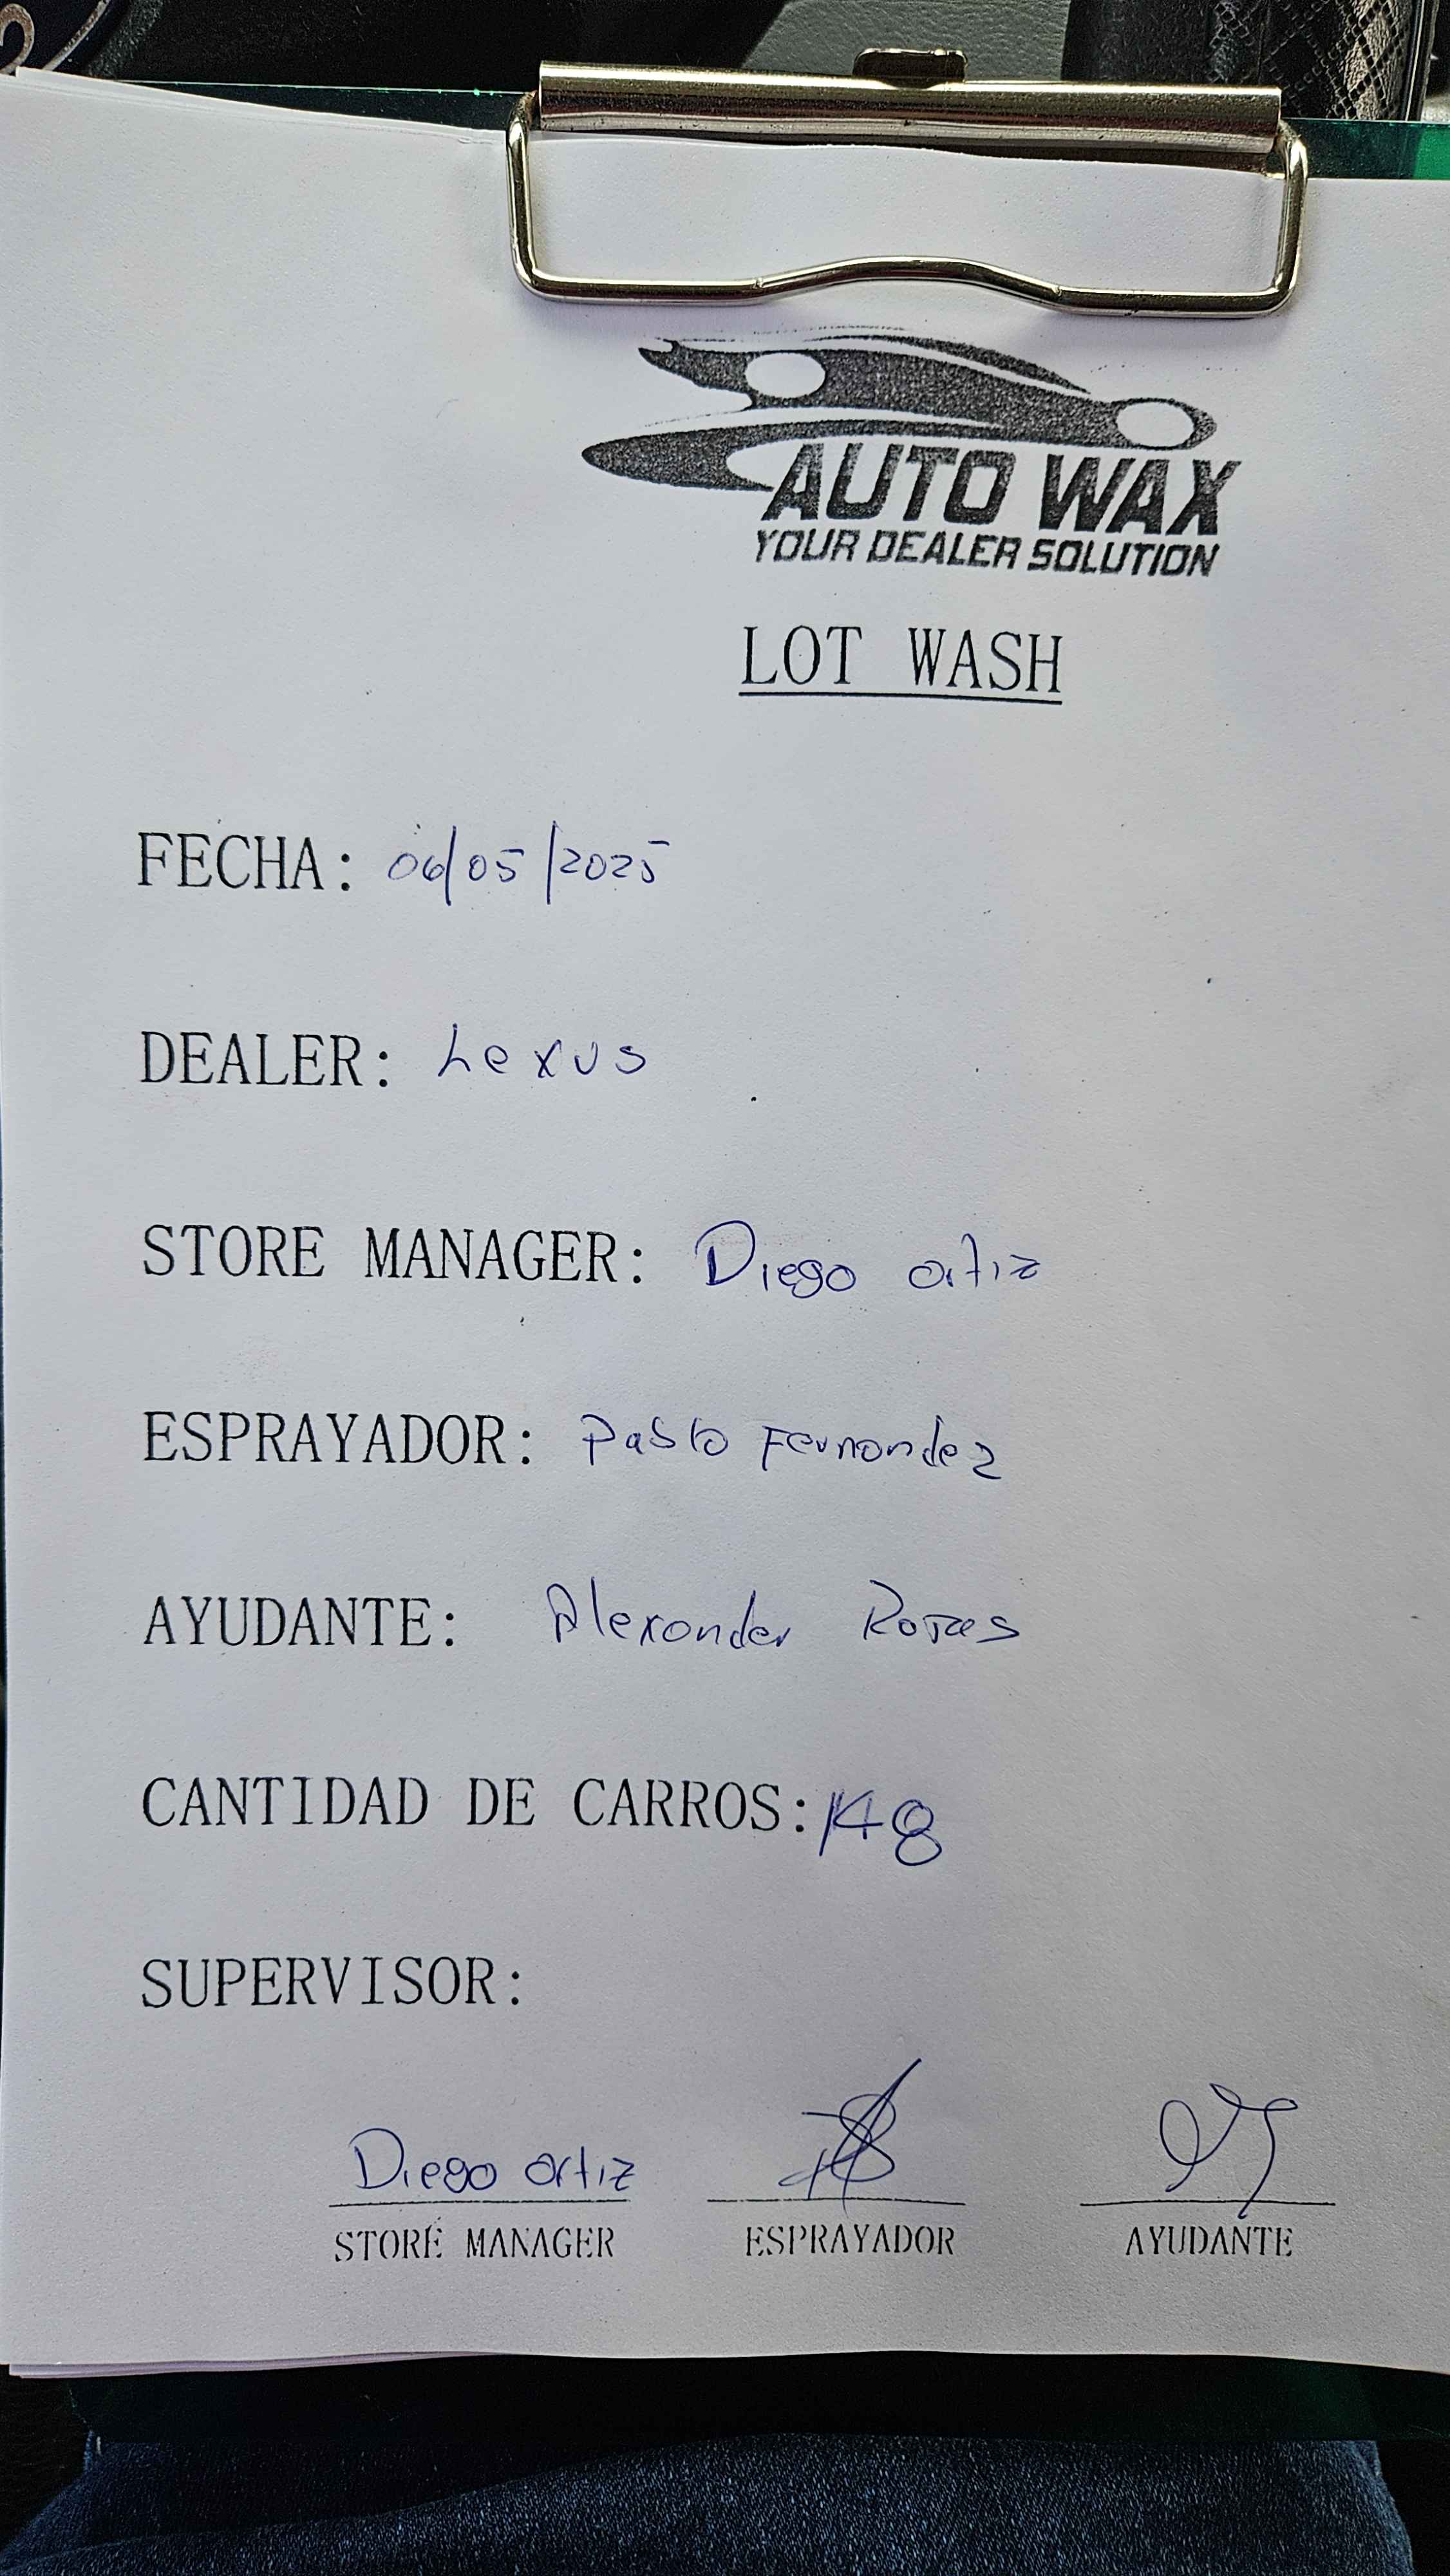 AUTO WAX
YOUR DEALER SOLUTION
LOT WASH
FECHA: 06/05/2025
DEALER: Lexus
STORE MANAGER: Diego ortiz
ESPRAYADOR: Pablo Fernandez
AYUDANTE: Alexander Rojas
CANTIDAD DE CARROS: 148
SUPERVISOR:
Diego ortiz
STORE MANAGER ESPRAYADOR AYUDANTE